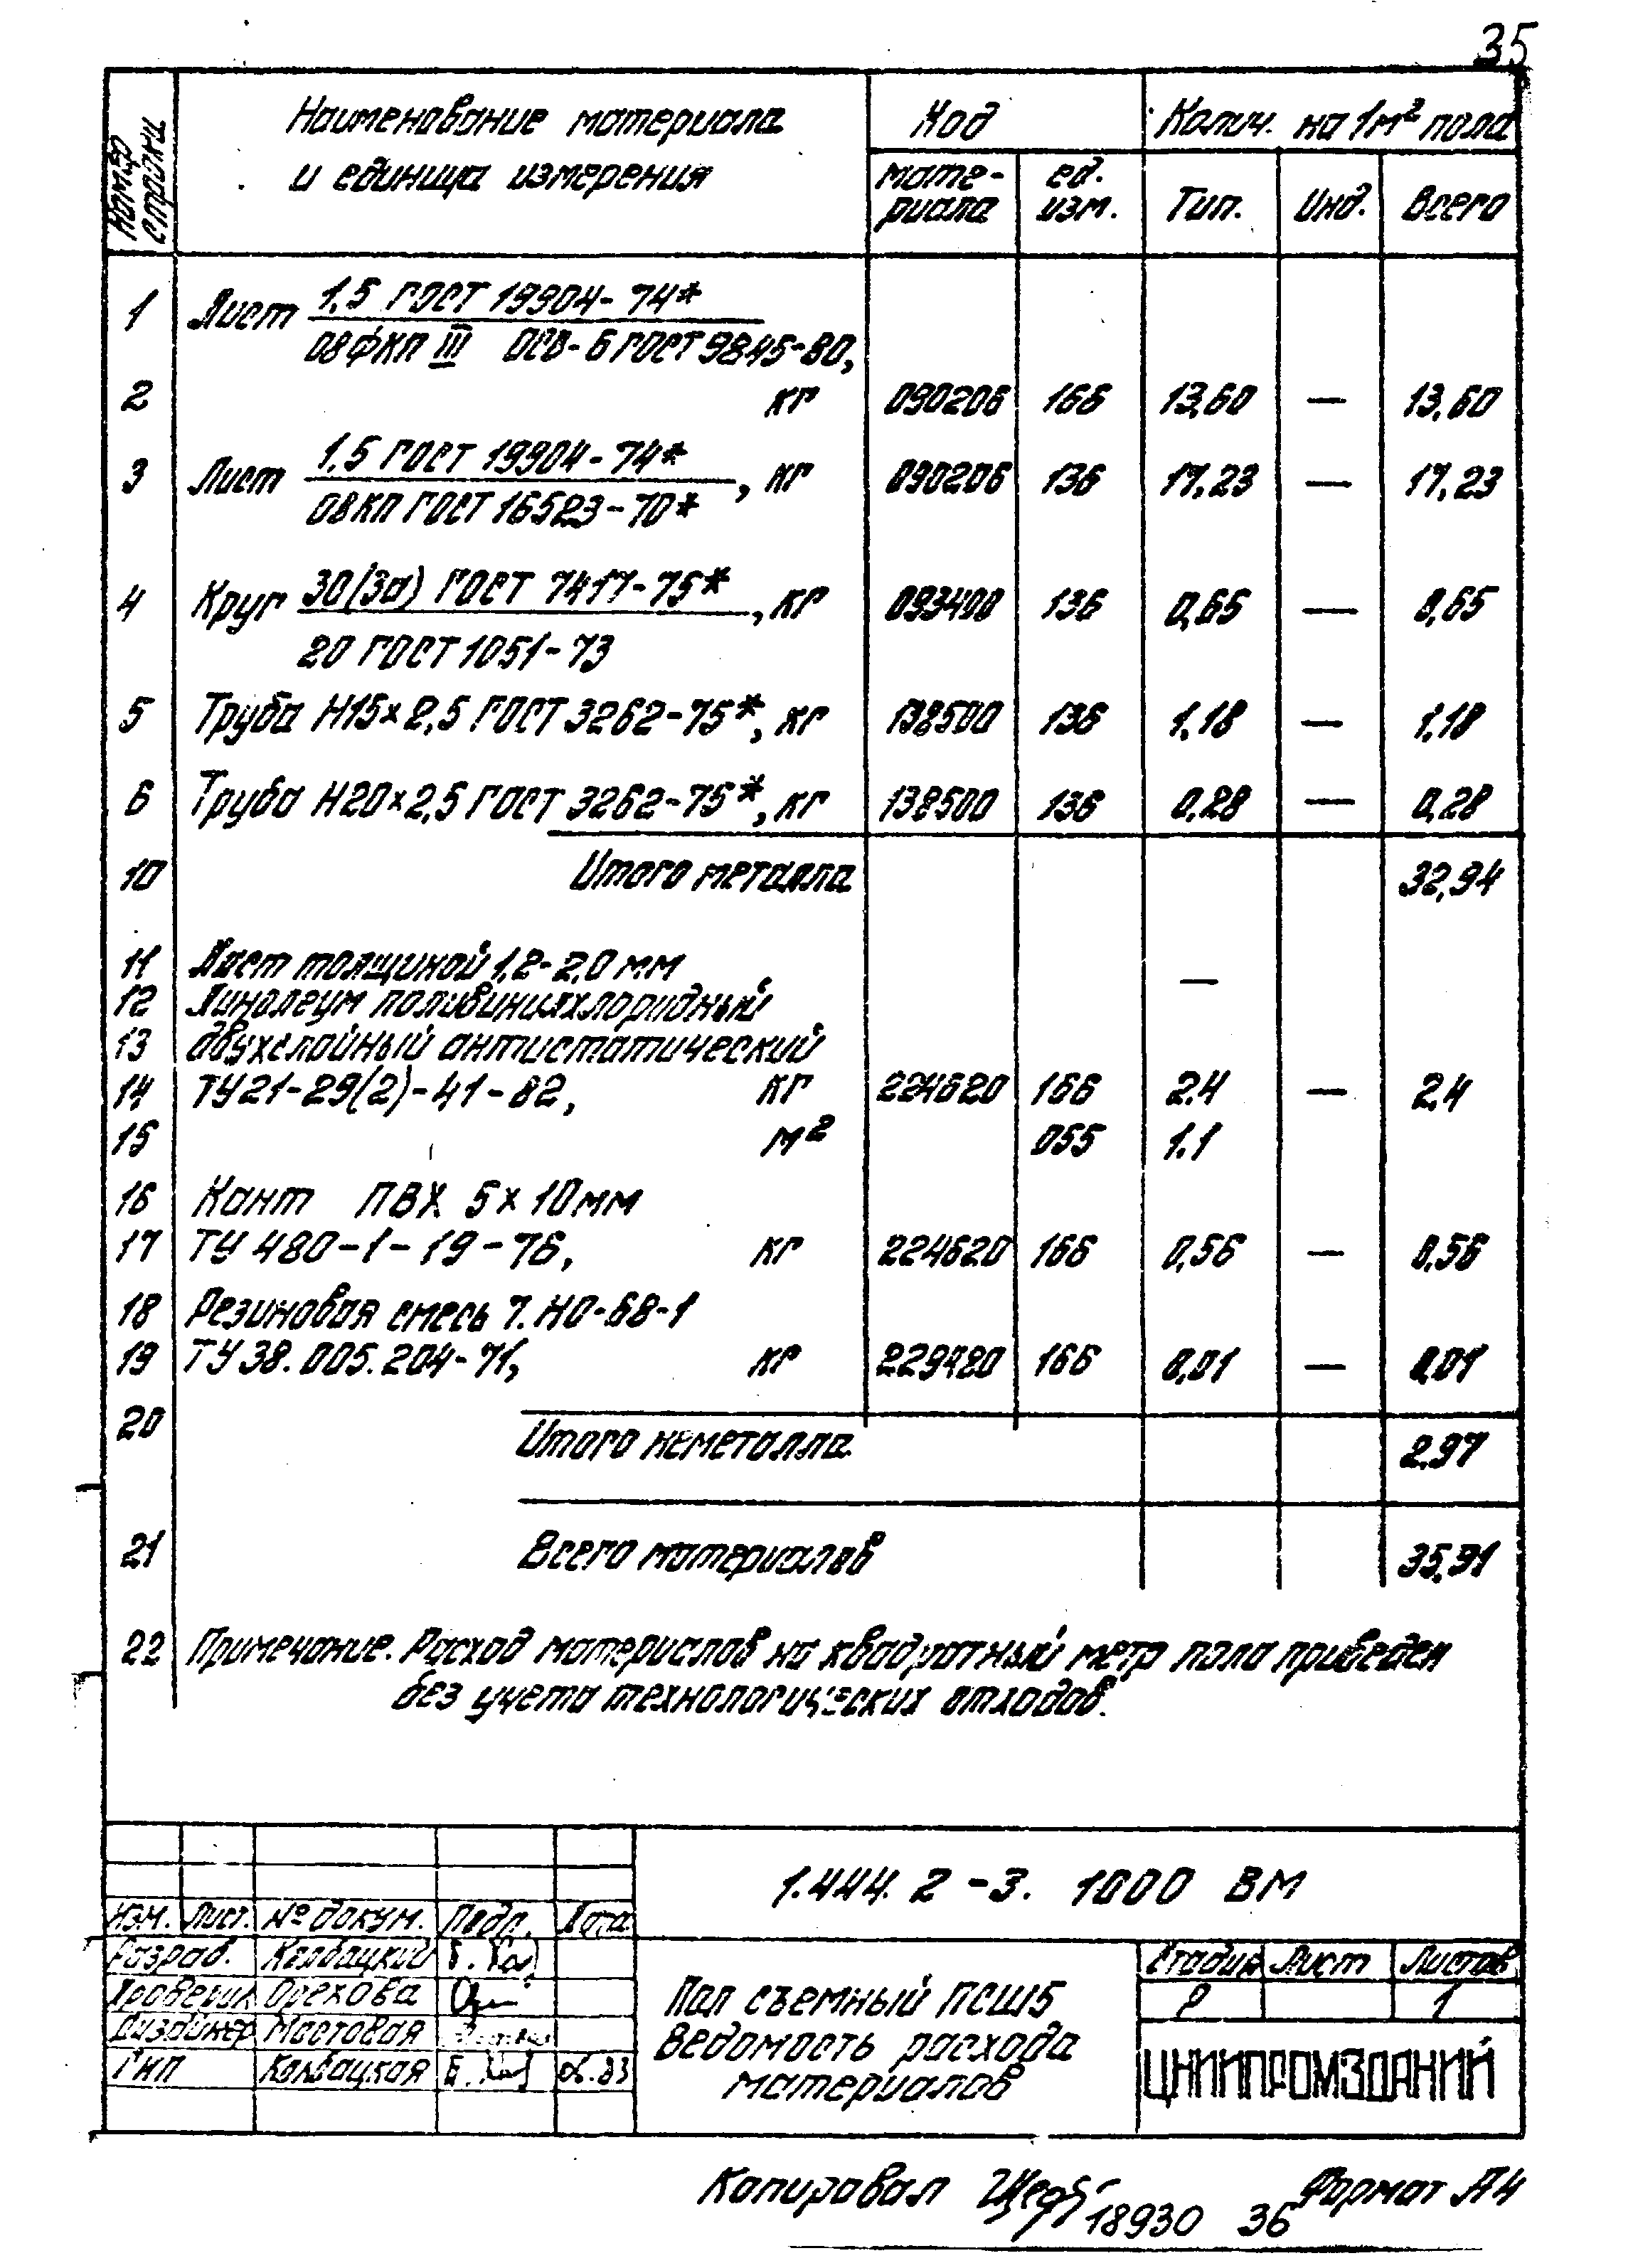 35
Номер строки
Наименование материала и единица измерения
Код
Колич. на 1м² пола
мате-риала
ед. изм.
Тип.
Инд.
Всего
1 Лист 1,5 ГОСТ 19904-74*
08ФКП III ОСВ-Б ГОСТ 9845-80,
2 кг 090206 166 13,60 — 13,60
3 Лист 1,5 ГОСТ 19904-74* , кг 090206 136 17,23 — 17,23
08КП ГОСТ 16523-70*
4 Круг 30(3а) ГОСТ 7417-75* , кг 093400 136 0,65 — 0,65
20 ГОСТ 1051-73
5 Труба Н15×2,5 ГОСТ 3262-75*, кг 138500 136 1,18 — 1,18
6 Труба Н20×2,5 ГОСТ 3262-75*, кг 138500 136 0,28 — 0,28
10 Итого металла 32,94
11 Лист толщиной 1,2-2,0 мм —
12 Линолеум поливинилхлоридный
13 двухслойный антистатический
14 ТУ21-29(2)-41-82, кг 224620 166 2.4 — 2,4
15 м² 055 1.1
16 Кант ПВХ 5×10мм
17 ТУ 480-1-19-76, кг 224620 166 0,56 — 0,56
18 Резиновая смесь 7.НО-68-1
19 ТУ38.005.204-71, кг 166 0,01 — 0,01
20 Итого неметалла 2,97
21 Всего материалов 35,91
22 Примечание. Расход материалов на квадратный метр пола приведен
без учета технологических отходов.
1.444.2-3. 1000 ВМ
Изм. Лист. № докум. Подп. Дата
Разраб. Колбацкий
Проверил Орехова
Дизайнер Мостовая
ГИП Колбацкая 06.83
Пол съемный ПСШ5
Ведомость расхода
материалов
Стадия Лист Листов
Р 1
ЦНИИПРОМЗДАНИЙ
Копировал Формат А4
18930 36